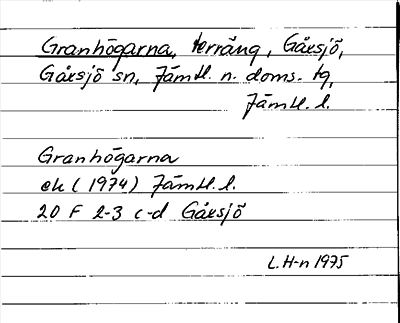 Granhögarna, terräng, Gåxsjö,
Gåxsjö sn, Jämtl. n. doms. tg,
Jämtl. l.
Granhögarna
ek (1974) Jämtl. l.
20 F 2-3 c-d Gåxsjö
L. H-n 1975